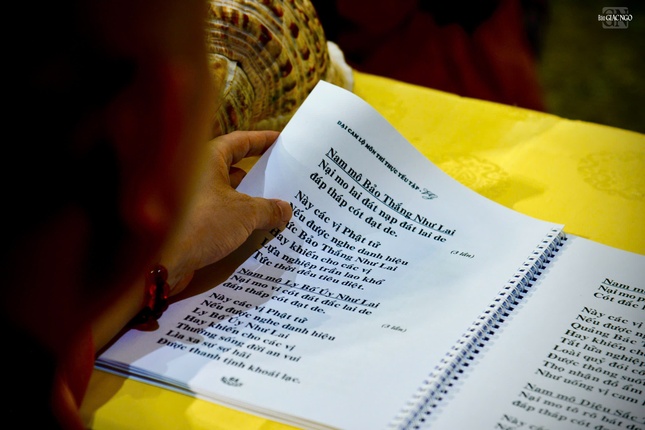 Báo GIÁC NGỘ
ĐẠI CAM LỘ MÔN TRÍ THỰC YẾU TẬP
Nam mô Bảo Thắng Như Lai
Nại mo lai đát nạp đát lai de
đáp tháp cót đạt de.
(3 lần)
Này các vị Phật tử
Nếu được nghe danh hiệu
Đức Bảo Thắng Như Lai
Hay khiến cho các vị
Lửa nghiệp trần lao khổ
Tức thời đều tiêu diệt.
Nam mô Ly Bố Úy Như Lai
Nại mo vi cót đát đắc lai de
đáp tháp cót đạt de.
(3 lần)
Này các vị Phật tử
Nếu được nghe danh hiệu
Ly Bố Úy Như Lai
Hay khiến cho các vị
Thường sống đời an vui
Lìa xa sự sợ hãi
Được thanh tịnh khoái lạc.
Nam mô
Nại mo p
Cót đát
Này các vị
Nếu được
Quảng Bác
Hay khiến
Tất lửa nghiệ
Loài quỷ đói cổ
Được thông suốt
Thọ nhận đồ ẩm
Như uống vị cam l
Nam mô Diệu Sắc
Nại mo tô rô hát đ
đáp tháp cót đạt de.
Này các vị
Nếu được